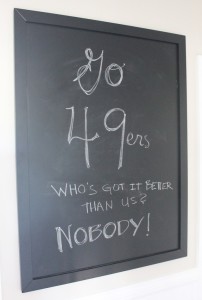 Go
49ers
WHO'S GOT IT BETTER
THAN US?
NOBODY!